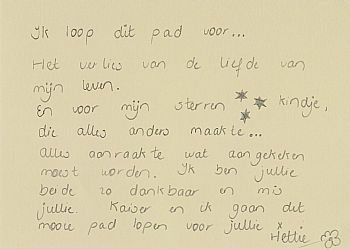 Ik loop dit pad voor...
Het verlies van de liefde van
mijn leven.
En voor mijn sterren kindje,
die alles anders maakte...
Alles aanraakte wat aangekeken
moest worden. Ik ben jullie
beide zo dankbaar en mis
jullie. Kaiser en ik gaan dit
mooie pad lopen voor jullie
Hettie